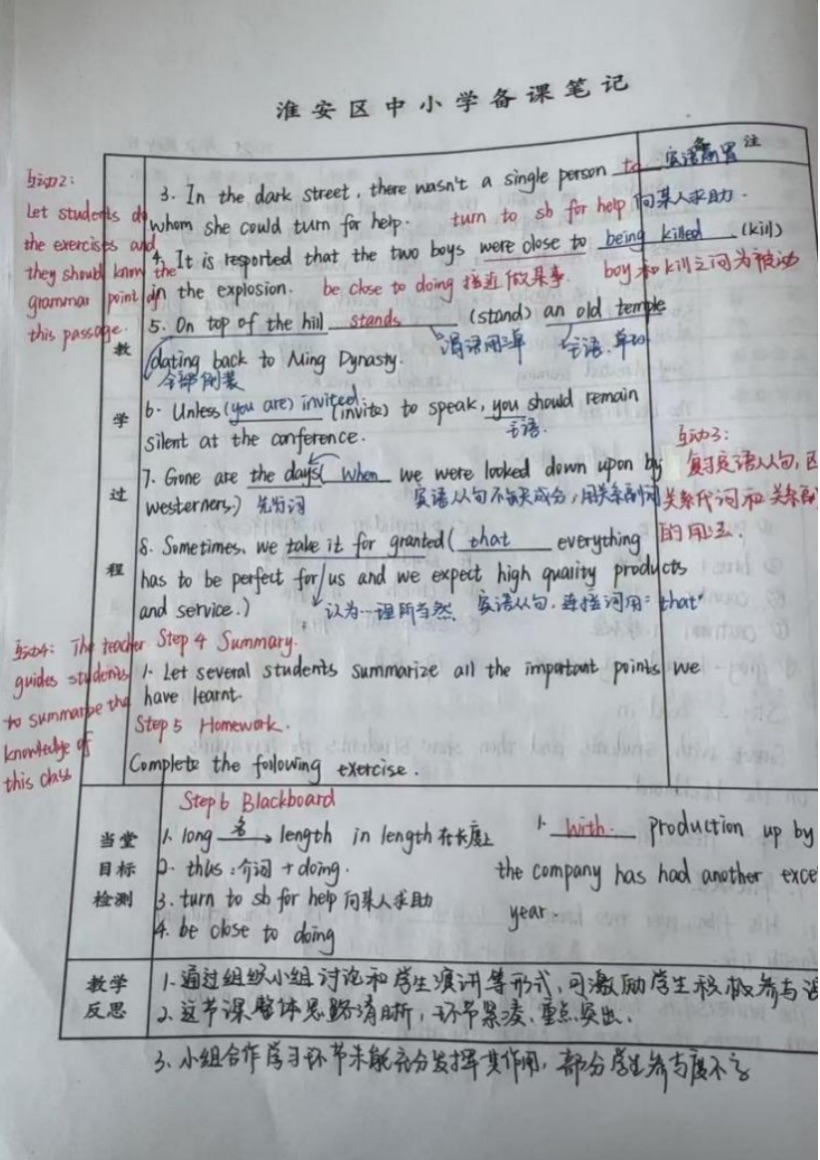 淮安区中小学备课笔记
备注
教学过程
互动2:
Let students do
the exercises and
they should know the
grammar point of
this passage.
3. In the dark street, there wasn't a single person to 定语前置
whom she could turn for help. turn to sb for help 向某人求助.
4. It is resported that the two boys were close to being killed (kill)
in the explosion. be close to doing 接近做某事. boy和kill之间为被动
5. On top of the hill stands (stand) an old temple
谓语用三单 主语.单数
dating back to Ming Dynasty.
全部倒装
6. Unless (you are) invited (invite) to speak, you should remain
主语.
silent at the conference.
7. Gone are the days( when we were looked down upon by
westerners.) 先行词 定语从句不缺成分,用关系副词
互动3:
复习定语从句,区
关系代词和关系副
的用法.
8. Sometimes, we take it for granted( that everything
has to be perfect for us and we expect high quality products
and service.) 认为…理所当然 宾语从句.连接词用:"that"
互动4: The teacher
guides students
to summarize the
knowledge of
this class
Step 4 Summary.
1. Let several students summarize all the important points we
have learnt.
Step 5 Homework.
Complete the following exercise.
当堂
目标
检测
Step 6 Blackboard
1. long 名 length in length 在长度上
2. thus:介词+doing.
3. turn to sb for help 向某人求助
4. be close to doing
1. With production up by
the company has had another exce
year.
教学
反思
1.通过组织小组讨论和学生演讲等形式,可激励学生积极参与课
2.这节课整体思路清晰,环节紧凑.重点突出.
3.小组合作学习环节未能充分发挥其作用,部分学生参与度不高